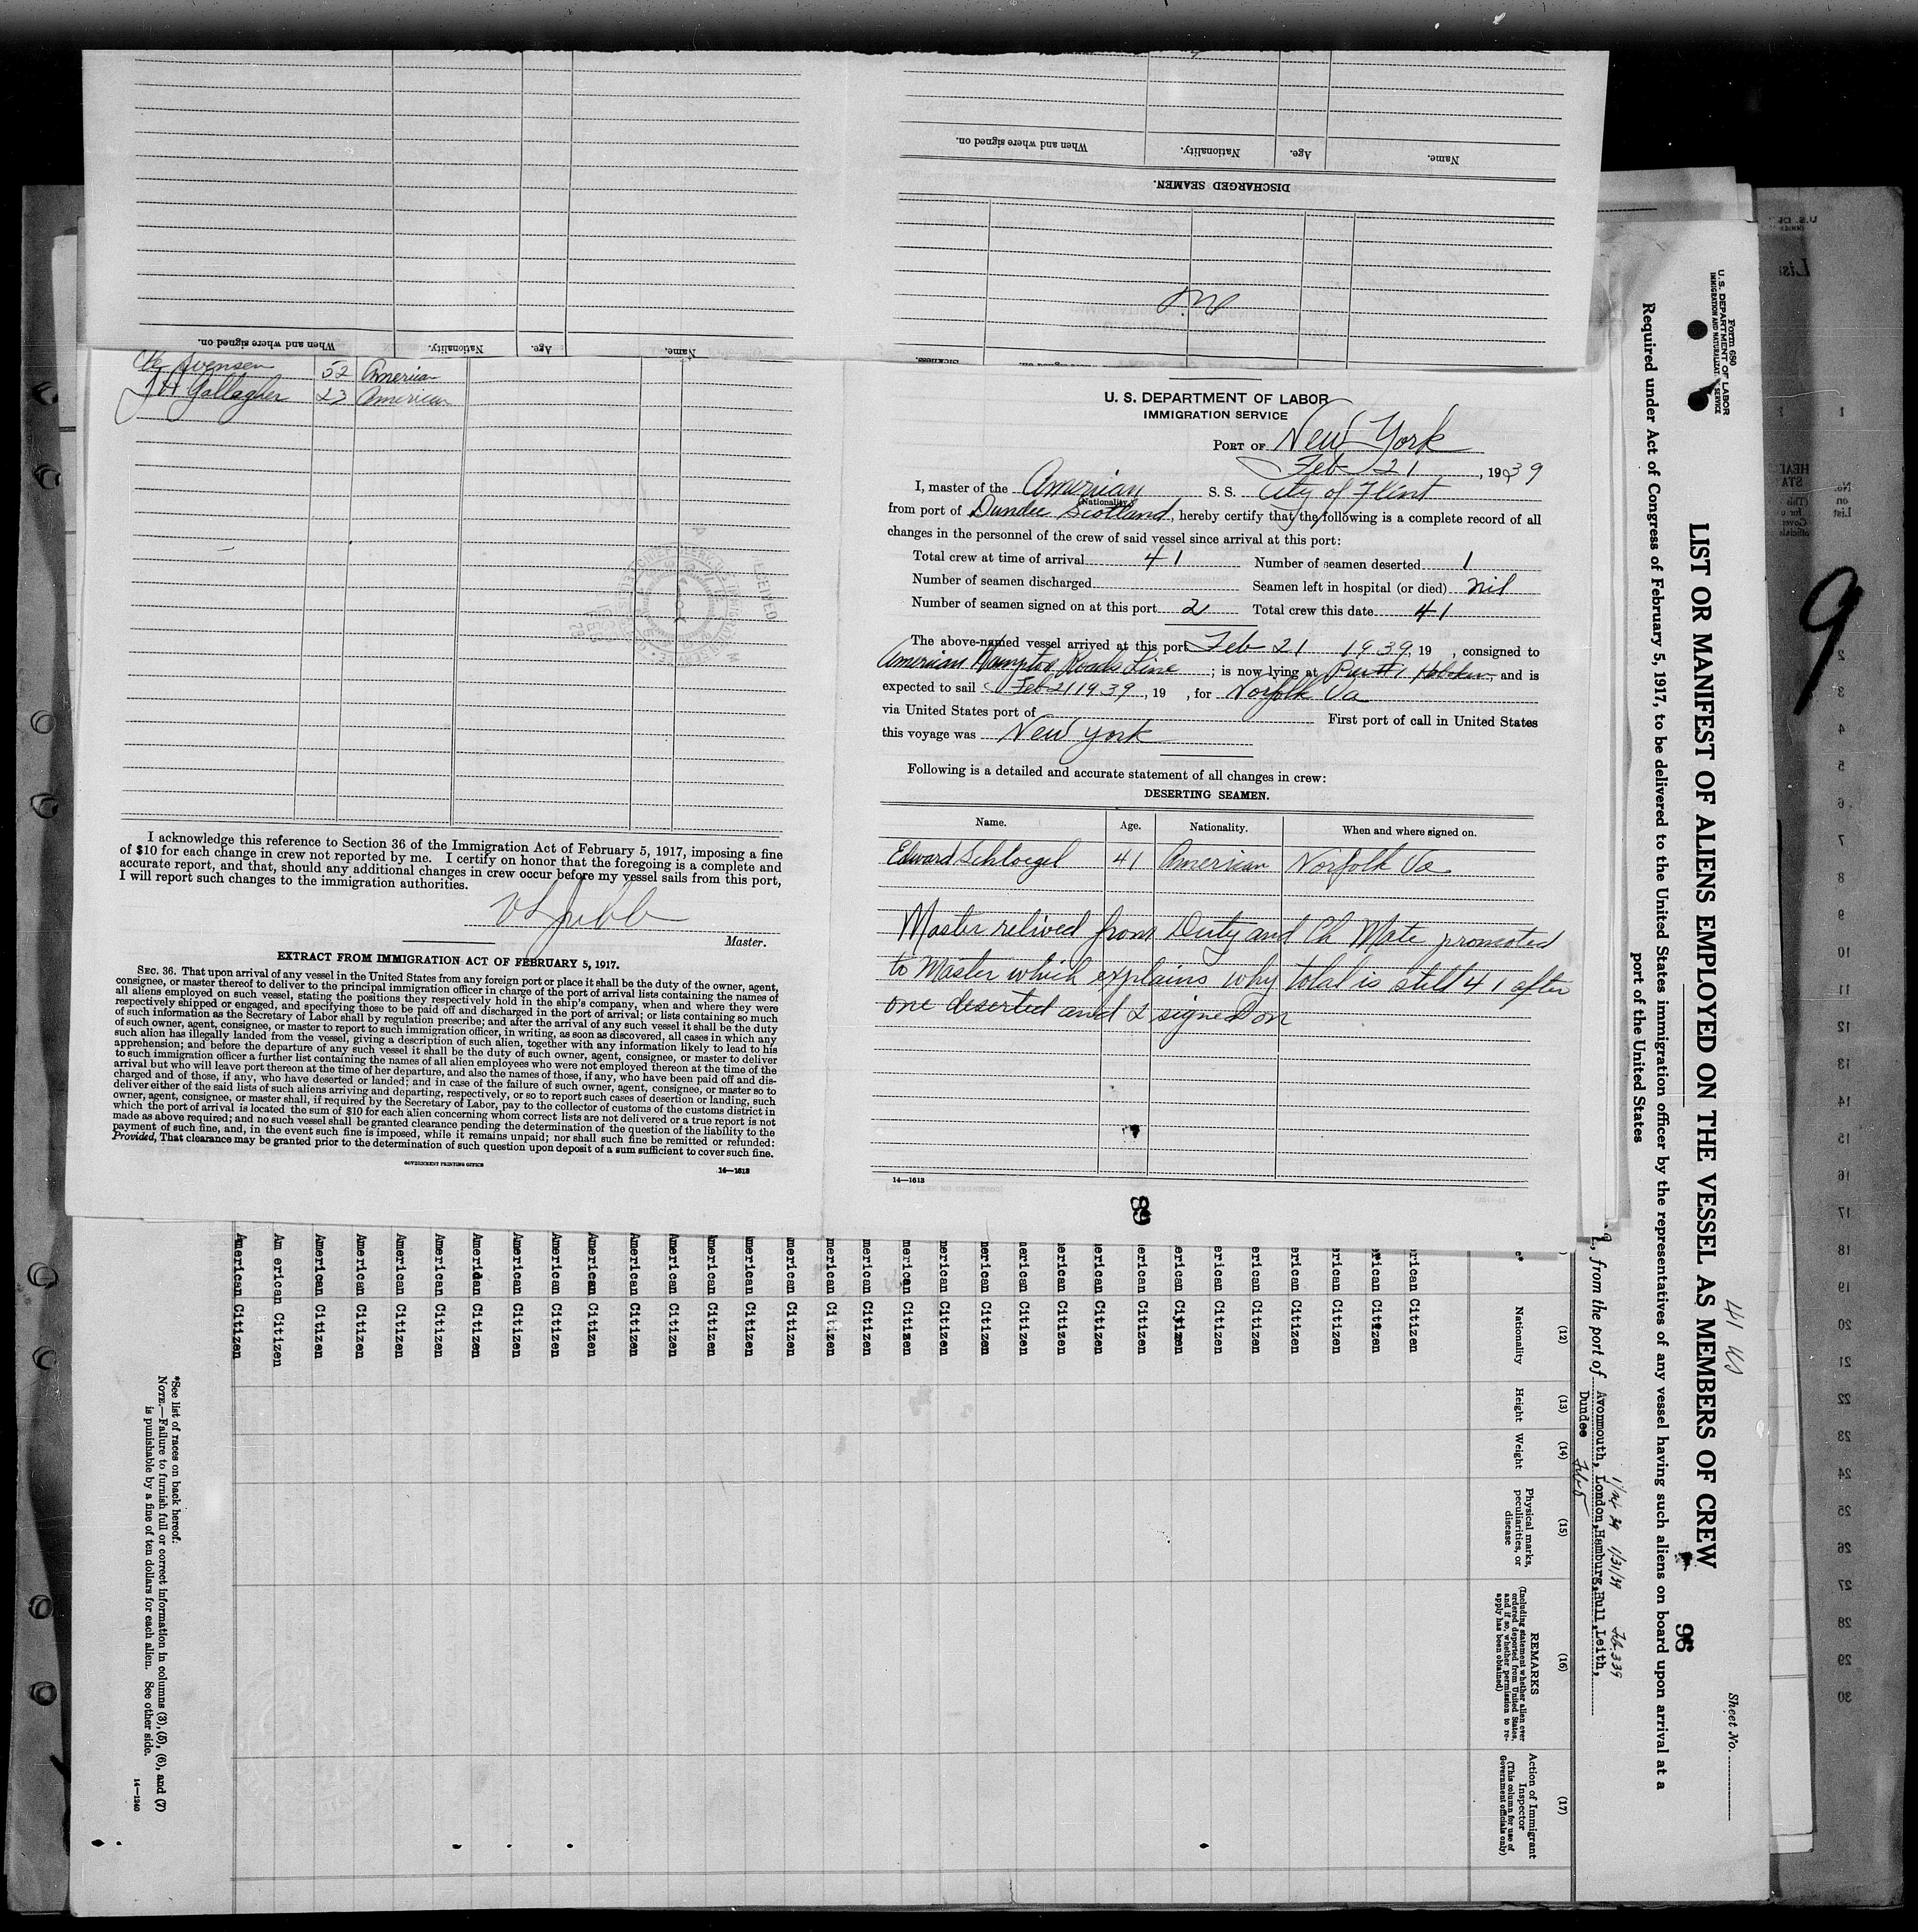 When and where signed on.
Nationality.
Age.
Name.
When and where signed on.
Nationality.
Age.
Name.
DISCHARGED SEAMEN.
Svensen 52 American
J H Gallagher 23 American
I acknowledge this reference to Section 36 of the Immigration Act of February 5, 1917, imposing a fine
of $10 for each change in crew not reported by me. I certify on honor that the foregoing is a complete and
accurate report, and that, should any additional changes in crew occur before my vessel sails from this port,
I will report such changes to the immigration authorities.
Master.
EXTRACT FROM IMMIGRATION ACT OF FEBRUARY 5, 1917.
SEC. 36. That upon arrival of any vessel in the United States from any foreign port or place it shall be the duty of the owner, agent,
consignee, or master thereof to deliver to the principal immigration officer in charge of the port of arrival lists containing the names of
all aliens employed on such vessel, stating the positions they respectively hold in the ship's company, when and where they were
respectively shipped or engaged, and specifying those to be paid off and discharged in the port of arrival; or lists containing so much
of such information as the Secretary of Labor shall by regulation prescribe; and after the arrival of any such vessel it shall be the duty
of such owner, agent, consignee, or master to report to such immigration officer, in writing, as soon as discovered, all cases in which any
such alien has illegally landed from the vessel, giving a description of such alien, together with any information likely to lead to his
apprehension; and before the departure of any such vessel it shall be the duty of such owner, agent, consignee, or master to deliver
to such immigration officer a further list containing the names of all alien employees who were not employed thereon at the time of the
arrival but who will leave port thereon at the time of her departure, and also the names of those, if any, who have been paid off and dis-
charged and of those, if any, who have deserted or landed; and in case of the failure of such owner, agent, consignee, or master so to
deliver either of the said lists of such aliens arriving and departing, respectively, or so to report such cases of desertion or landing, such
owner, agent, consignee, or master shall, if required by the Secretary of Labor, pay to the collector of customs of the customs district in
which the port of arrival is located the sum of $10 for each alien concerning whom correct lists are not delivered or a true report is not
made as above required; and no such vessel shall be granted clearance pending the determination of the question of the liability to the
payment of such fine, and, in the event such fine is imposed, while it remains unpaid; nor shall such fine be remitted or refunded:
Provided, That clearance may be granted prior to the determination of such question upon deposit of a sum sufficient to cover such fine.
GOVERNMENT PRINTING OFFICE
14—1613
U. S. DEPARTMENT OF LABOR
IMMIGRATION SERVICE
PORT OF New York
Feb 21, 1939
I, master of the American S. S. City of Flint
(Nationality)
from port of Dundee Scotland, hereby certify that the following is a complete record of all
changes in the personnel of the crew of said vessel since arrival at this port:
Total crew at time of arrival 41 Number of seamen deserted 1
Number of seamen discharged Seamen left in hospital (or died) nil
Number of seamen signed on at this port 2 Total crew this date 41
The above-named vessel arrived at this port Feb 21 1939, 19 , consigned to
American Hampton Roads Line ; is now lying at Pier #1 Hoboken, and is
expected to sail Feb 21 1939, 19 , for Norfolk Va
via United States port of First port of call in United States
this voyage was New York
Following is a detailed and accurate statement of all changes in crew:
DESERTING SEAMEN.
Name. Age. Nationality. When and where signed on.
Edward Schloegel 41 American Norfolk Va
Master relived from Duty and Ch Mate promoted
to Master which explains why total is still 41 after
one deserted and 2 signed on
14—1613
89
Form 680
U. S. DEPARTMENT OF LABOR
IMMIGRATION AND NATURALIZAT SERVICE
Sheet No.
41 US
LIST OR MANIFEST OF ALIENS EMPLOYED ON THE VESSEL AS MEMBERS OF CREW
96
Required under Act of Congress of February 5, 1917, to be delivered to the United States immigration officer by the representatives of any vessel having such aliens on board upon arrival at a
port of the United States
1/31/39
, from the port of Avonmouth, London, Hamburg, Hull, Leith,
Dundee Feb 5
(12) (13) (14) (15) (16) (17)
Nationality
Height
Weight
Physical marks, peculiarities, or disease
REMARKS
(Including statement whether alien ever ordered deported from United States, and if so, whether permission to re-apply has been obtained)
Action of Immigrant Inspector
(This column for use of Government officials only)
rican Citizen
rican Citizen
erican Citizen
erican Citizen
erican Citizen
erican Citizen
erican Citizen
erican Citizen
erican Citizen
erican Citizen
erican Citizen
merican Citizen
merican Citizen
merican Citizen
merican Citizen
merican Citizen
merican Citizen
American Citizen
American Citizen
American Citizen
American Citizen
American Citizen
American Citizen
American Citizen
American Citizen
American Citizen
American Citizen
American Citizen
American Citizen
Am erican Citizen
American Citizen
*See list of races on back hereof.
NOTE.—Failure to furnish full or correct information in columns (3), (5), (6), and (7)
is punishable by a fine of ten dollars for each alien. See other side.
14—1240
9